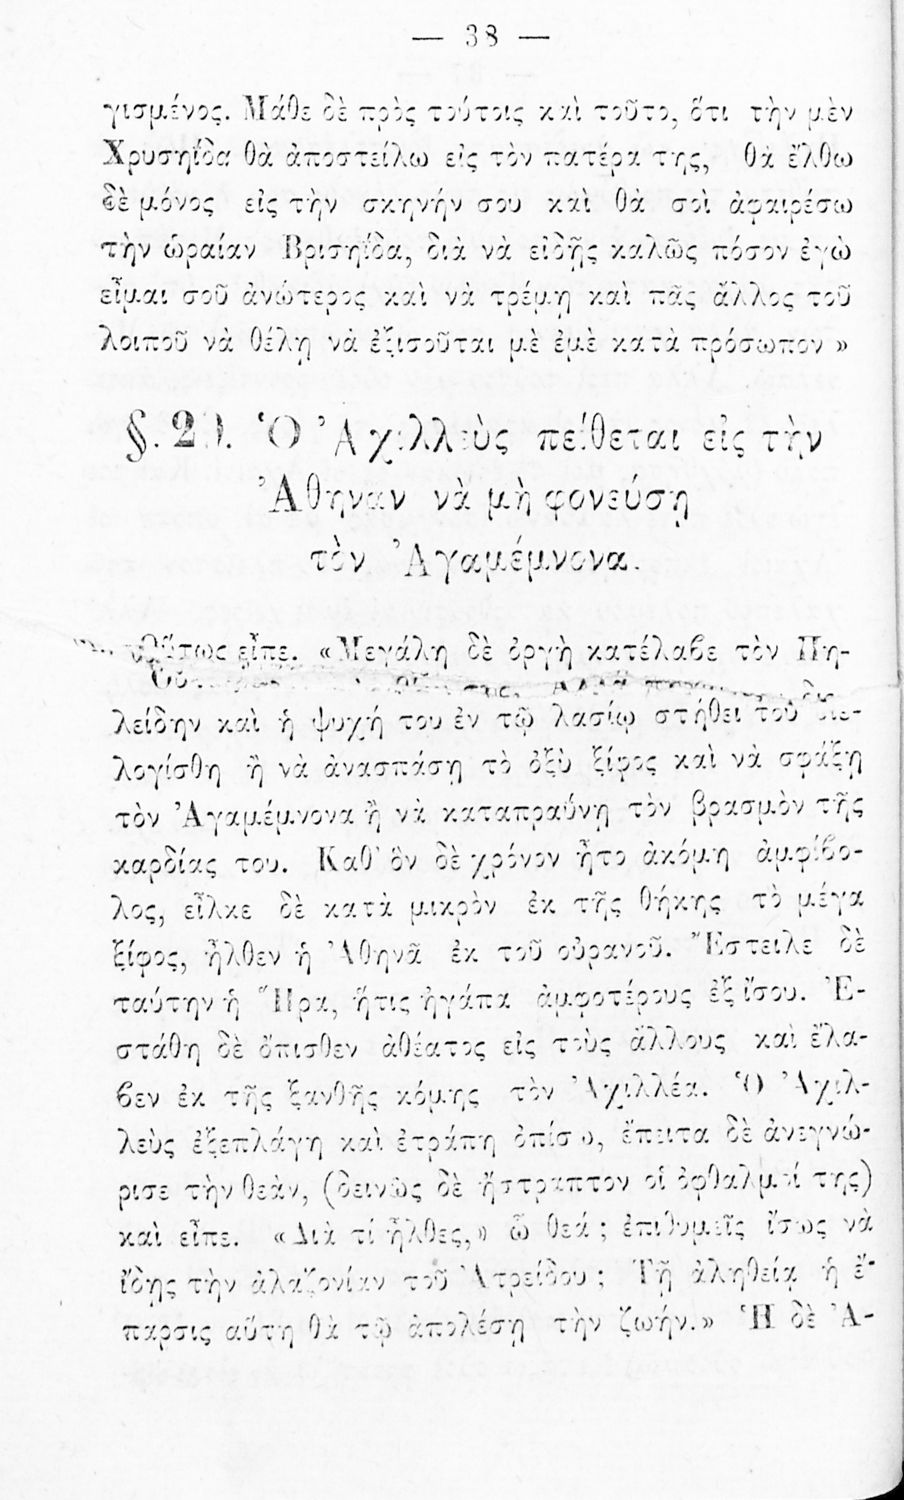 — 38 —
γισμένος. Μάθε δὲ πρὸς τούτοις καὶ τοῦτο, ὅτι τὴν μὲν
Χρυσηΐδα θὰ ἀποστείλω εἰς τὸν πατέρα της, θὰ ἔλθω
δὲ μόνος εἰς τὴν σκηνήν σου καὶ θὰ σοὶ ἀφαιρέσω
τὴν ὡραίαν Βρισηΐδα, διὰ νὰ εἰδῇς καλῶς πόσον ἐγὼ
εἶμαι σοῦ ἀνώτερος καὶ νὰ τρέμῃ καὶ πᾶς ἄλλος τοῦ
λοιποῦ νὰ θέλῃ νὰ ἐξισοῦται μὲ ἐμὲ κατὰ πρόσωπον »
§. 29. Ὁ Ἀχιλλεὺς πείθεται εἰς τὴν
Ἀθηνᾶν νὰ μὴ φονεύσῃ
τὸν Ἀγαμέμνονα.
Οὕτως εἶπε. «Μεγάλη δὲ ὀργὴ κατέλαβε τὸν Πη-
λείδην καὶ ἡ ψυχή του ἐν τῷ λασίῳ στήθει τοῦ διε-
λογίσθη ἢ νὰ ἀνασπάσῃ τὸ ὀξὺ ξίφος καὶ νὰ σφάξῃ
τὸν Ἀγαμέμνονα ἢ νὰ καταπραΰνῃ τὸν βρασμὸν τῆς
καρδίας του. Καθ' ὃν δὲ χρόνον ἦτο ἀκόμη ἀμφίβο-
λος, εἷλκε δὲ κατὰ μικρὸν ἐκ τῆς θήκης τὸ μέγα
ξίφος, ἦλθεν ἡ Ἀθηνᾶ ἐκ τοῦ οὐρανοῦ. Ἔστειλε δὲ
ταύτην ἡ Ἥρα, ἥτις ἠγάπα ἀμφοτέρους ἐξ ἴσου. Ἐ-
στάθη δὲ ὄπισθεν ἀθέατος εἰς τοὺς ἄλλους καὶ ἔλα-
βεν ἐκ τῆς ξανθῆς κόμης τὸν Ἀχιλλέα. Ὁ Ἀχιλ-
λεὺς ἐξεπλάγη καὶ ἐτράπη ὀπίσω, ἔπειτα δὲ ἀνεγνώ-
ρισε τὴν θεὰν, (δεινῶς δὲ ἤστραπτον οἱ ὀφθαλμοί της)
καὶ εἶπε. «Διὰ τί ἦλθες,» ὦ θεά ; ἐπιθυμεῖς ἴσως νὰ
ἴδῃς τὴν ἀλαζονίαν τοῦ Ἀτρείδου ; Τῇ ἀληθείᾳ ἡ ἔ-
παρσις αὕτη θὰ τῷ ἀπολέσῃ τὴν ζωήν.» Ἡ δὲ Ἀ-